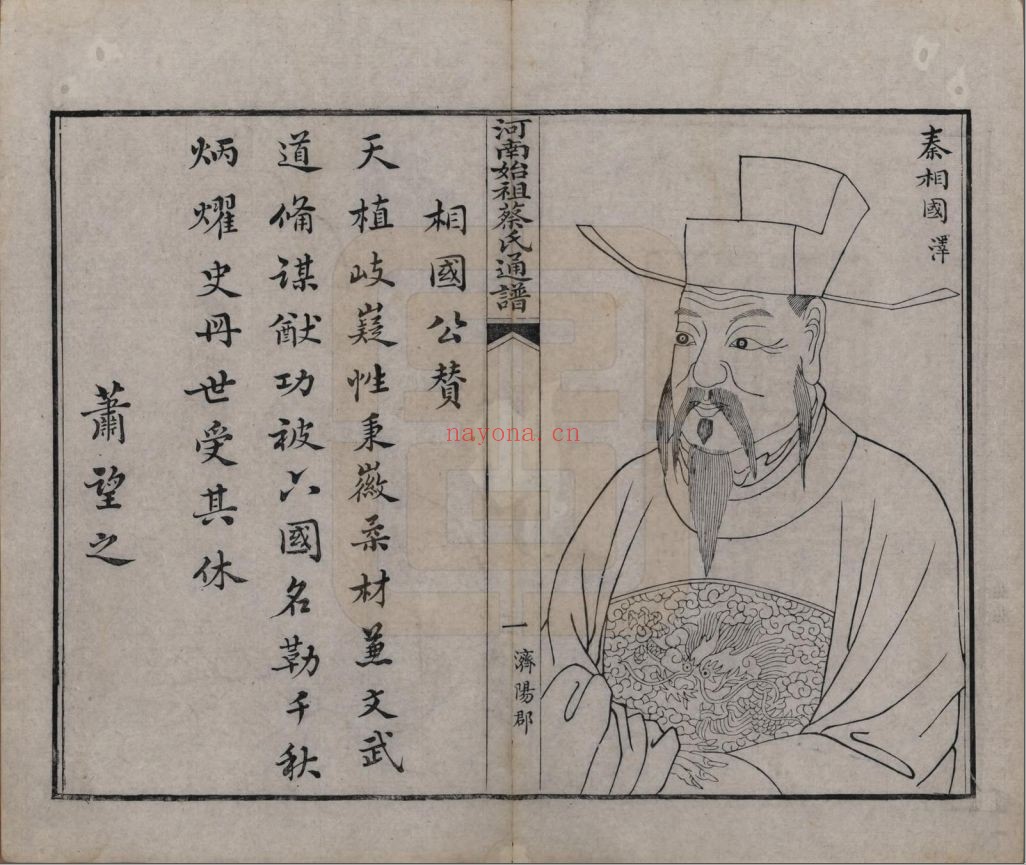 秦相國 澤
河南始祖蔡氏通譜
一 濟陽郡
相國公賛
天植岐嶷性秉徽柔材兼文武
道俻謀猷功被六國名勒千秋
炳耀史册世受其休
蕭望之
nayona.cn